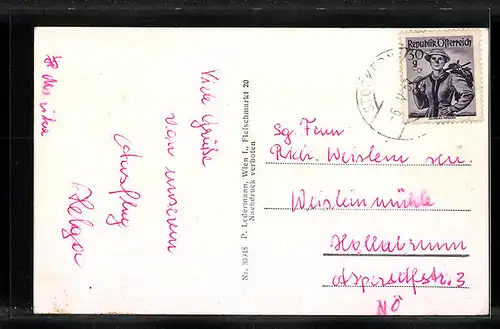 Viele Grüße
von unserem
Ausflug
Helga
Nr. 39318 P. Ledermann, Wien I., Fleischmarkt 20
Nachdruck verboten
Republik Österreich
30
g
Sg. Fam
Richr. Weislein sen.
Weisleinmühle
Hollabrunn
Aspersdfstr. 3
NÖ